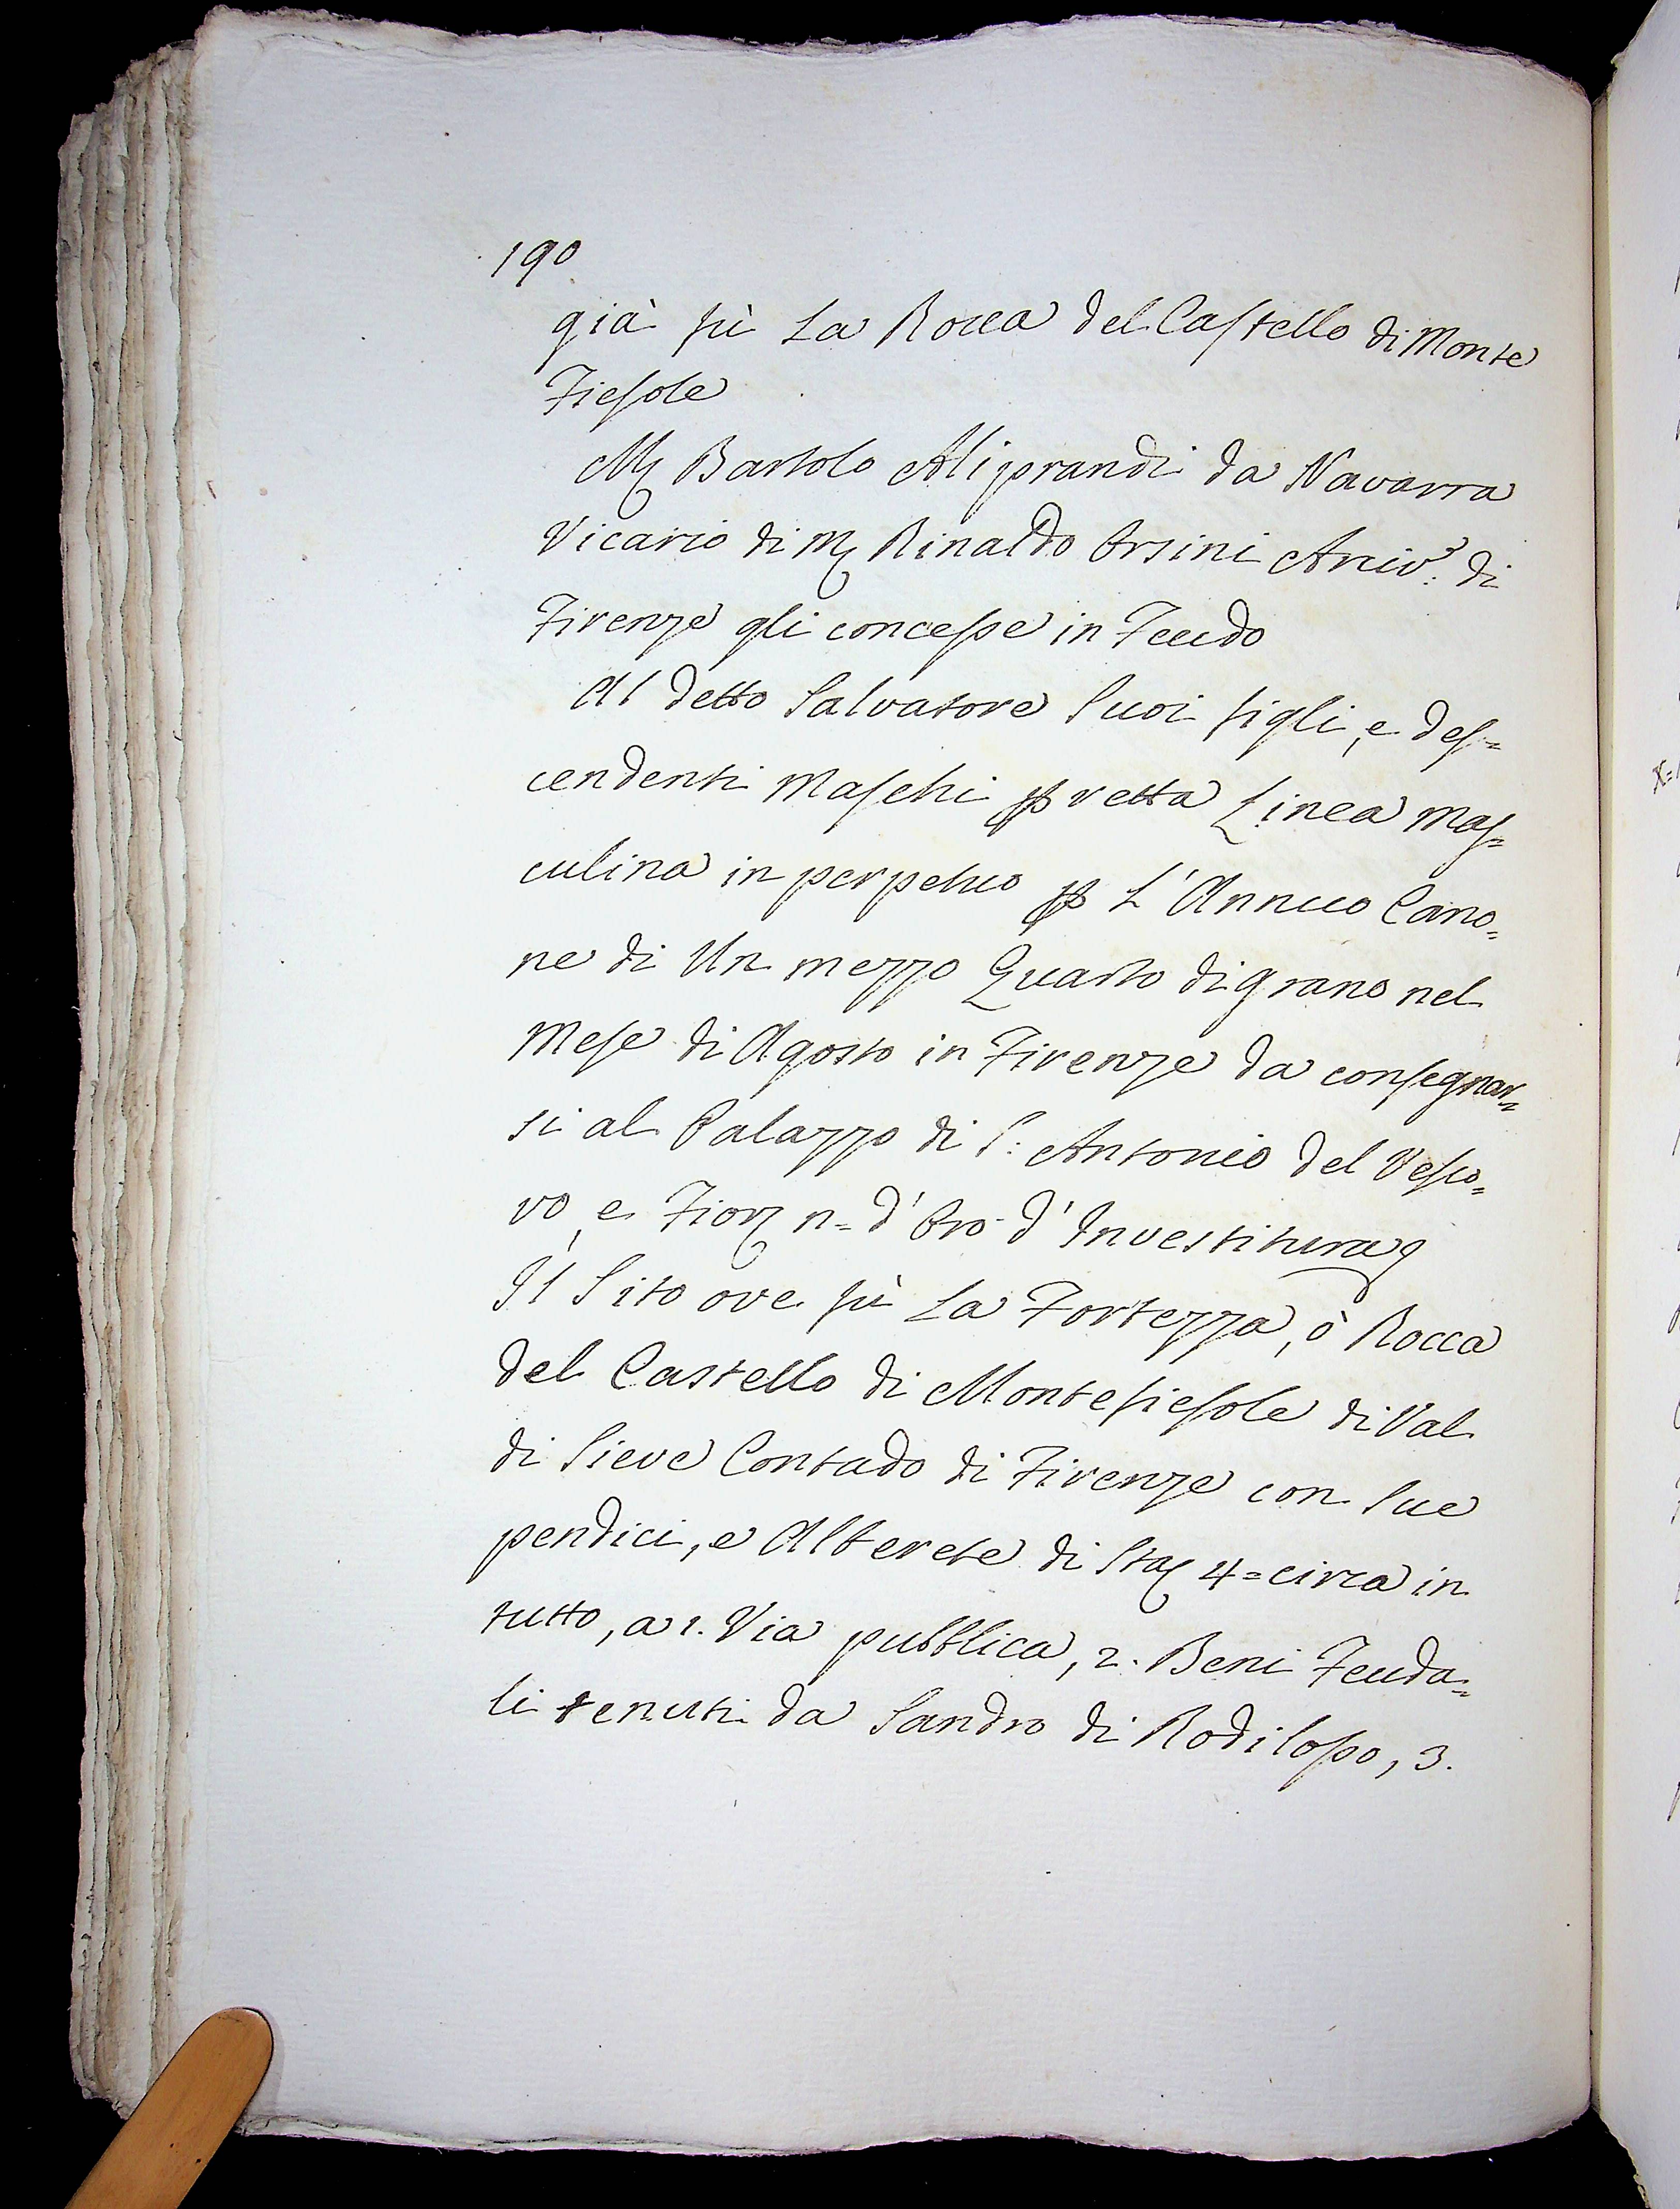 190
già fù La Rocca del Castello di Monte
Fiesole
Mr Bartolo Aliprandi da Navarra
Vicario di Mr Rinaldo Orsini Arciv.o di
Firenze gli concesse in Feudo
Al detto Salvatore Suoi figli, e des=
cendenti Maschi p retta Linea Mas=
culina in perpetuo p L'Annuo Cano=
ne di Un mezzo Quarto di grano nel
Mese di Agosto in Firenze da consegnar=
si al Palazzo di S: Antonio del Vesco=
vo, e Fior n= d'Oro d'Investitura
Il Sito ove fù La Fortezza, ò Rocca
del Castello di Montefiesole di Val
di Sieve Contado di Firenze con Sue
pendici, e Alberete di Sta 4= circa in
tutto, a 1. Via pubblica, 2. Beni Feuda=
li tenuti da Sandro di Rodilosso, 3.